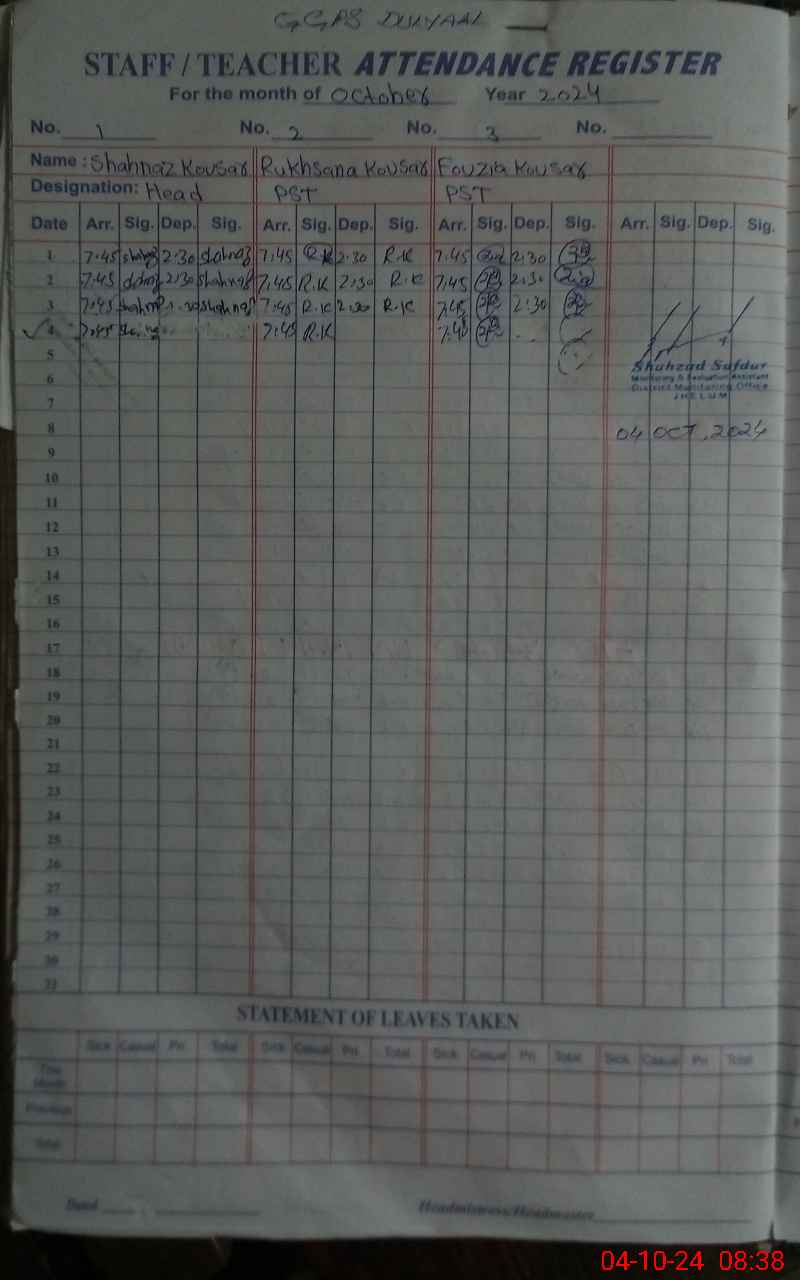 GGPS DULYAAL
STAFF / TEACHER ATTENDANCE REGISTER
For the month of October Year 2024
No. 1 No. 2 No. 3 No.
Name : Shahnaz Kousar Rukhsana Kousar Fouzia Kousar
Designation: Head PST PST
Date Arr. Sig. Dep. Sig. Arr. Sig. Dep. Sig. Arr. Sig. Dep. Sig. Arr. Sig. Dep. Sig.
1 7.45 2.30 Shahnaz 7.45 R.K 2.30 R.K 7.45 2.30
2 7.45 2.30 Shahnaz 7.45 R.K 2.30 R.K 7.45 2.30
3 7.45 Shahnaz 7.45 R.K 2.30 R.K 7.45 2.30
4 7.45 7.45 R.K 7.45
5
6
Shahzad Safdur
Monitoring & Evaluation Assistant
District Monitoring Office
JHELUM
7
8
04 OCT, 2024
9
10
11
12
13
14
15
16
17
18
19
20
21
22
23
24
25
26
27
28
29
30
STATEMENT OF LEAVES TAKEN
Sick Casual Pri Total Sick Casual Pri Total Sick Casual Pri Total Sick Casual Pri Total
This Month
Previous
Total
Dated
Headmistress/Headmaster
04-10-24 08:38